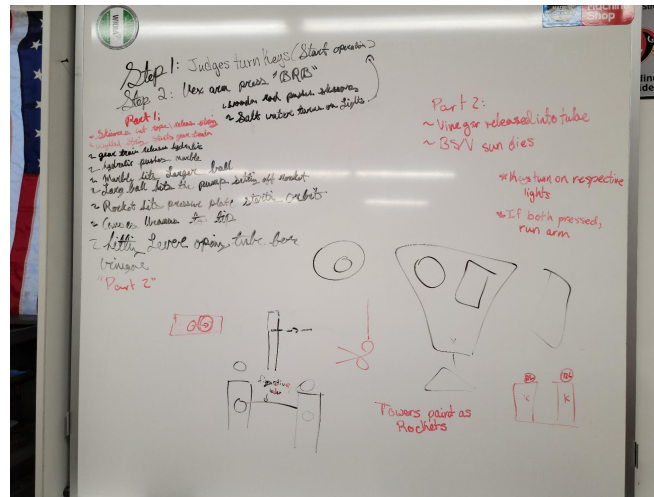 Step 1: Judges turn Keys (Start operation)
Step 2: Vex arm press "BRB"
wooden rod pushes skissors
~ Salt water turns on Lights.
Part 1:
~ Skissors cut rope, release string
~ gear train release hydrolic
~ hydrolic pushes marble
~ Marble hits Larger ball
~ Larg ball hits the pump setting off rocket
~ Rocket hits pressure plate starting orbits
~ Causes Uranus to tip
~ hitting Levere oping tube
Vinegar
"Part 2"
Part 2:
~ Vinegar released into tube
~ BS/V sun dies
* Keys turn on respective
lights
* If both pressed,
run arm
Towers paint as
Rockets
K K
Machine
Shop